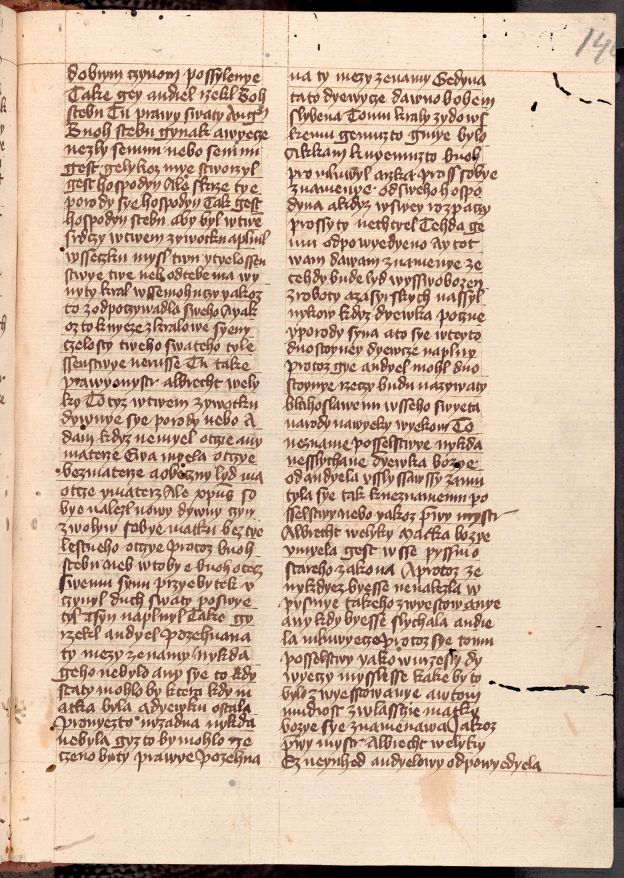 140
dobrym czynom possylenye
Take gey andiel rzekl Boh
stebu Tu prawy swaty Augu
Buoh stebu gynak a wyecze
nezly senmu nebo senmi
gest gelykoz mye stworzyl
gest hospodyn Ale skrze tye
porody sye hospodyn Tak gest
hospodyn stebu aby byl w twe
srdczy w twem zywotku aplnil
wsseczku mysl twu y tyelossen
stwye twe neb od tebe ma wy
nyty kral wssemohuczy yakoz
to z odpoczywadla sweho A yak
oz to knyeze z kralowe syeny
czelosty tweho swateho tyle
ssenstwye nerusse Tu take
prawy mystr albrecht wely
ky To tyz w twem zywotku
dywnye sye porody nebo A
dam kdyz nemyel otcze any
materze Ewa myela otczye
bez materze a obeczny lyd ma
otcze y materz Ale xpus so
bye nalezl nowy dywny czyn
zwoliw sobye matku bez tye
lestneho otczye Protoz buoh
stebu neb w tobye buoh otecz
swemu synu przyebytek v
czynyl duch swaty poswye
tyl Tsyn naplnyl Take gy
rzekl andyel Pozehnana
ty mezy zenamy Nykda
geho nebylo any sye to kdy
staty mohlo by ktera kdy m
atka byla a dyewku ostala
Pronyezto nizadna nykda
nebyla gyz to by mohlo rze
czeno byty prawye Pozehna
na ty mezy zenamy Gedyna
tato dyewycze dawno bohem
slybena Tomu kraly zydows
kemu gemuzto gmye bylo
k nyemuzto buoh
promluwyl a rzka pross sobye
znamenye od sweho hospo
dyna a kdyz w swey rozpaczy
prossyty nechtyel Tehda ge
mu odpowyedyeno Ay tot
wam dawam znamenye ze
tehdy bude lyd wyswobozen
z roboty a z asyrskych nassyl
nykow kdyz dyewka pocne
y porody syna a to sye w teyto
duostoyney dyewcze naplny
Protoz gye andyel mohl duo
stoynye rzeczy budu nazywaty
blahoslawenu wsseho swyeta
narody na wyeky wyekom To
neznane posselstwye nykda
neslychane dyewka bozye
od andyela vslyssawssy zamu
tyla sye tak k neznamemu po
sselstwy nebo yakoz prawy mystr
Albrecht welyky Matka bozye
vmyela gest wsse pyssmo
stareho zakona A protoz ze
nykdyez byesse nenalezla w
pysmye takeho zwyestowanye
any kdy byesse slychala andye
la mluwyecze Protoz sye tomu
posselstwy yako w niezeski dy
wyeczy mysslesse kake by to
bylo zwyestowanye a w tom
mudrost zwlasstie matky
bozye sye znamenawa Jakoz
prawy mystr Albrecht welyky
Ez neynhed andyelowy odpowyedyela